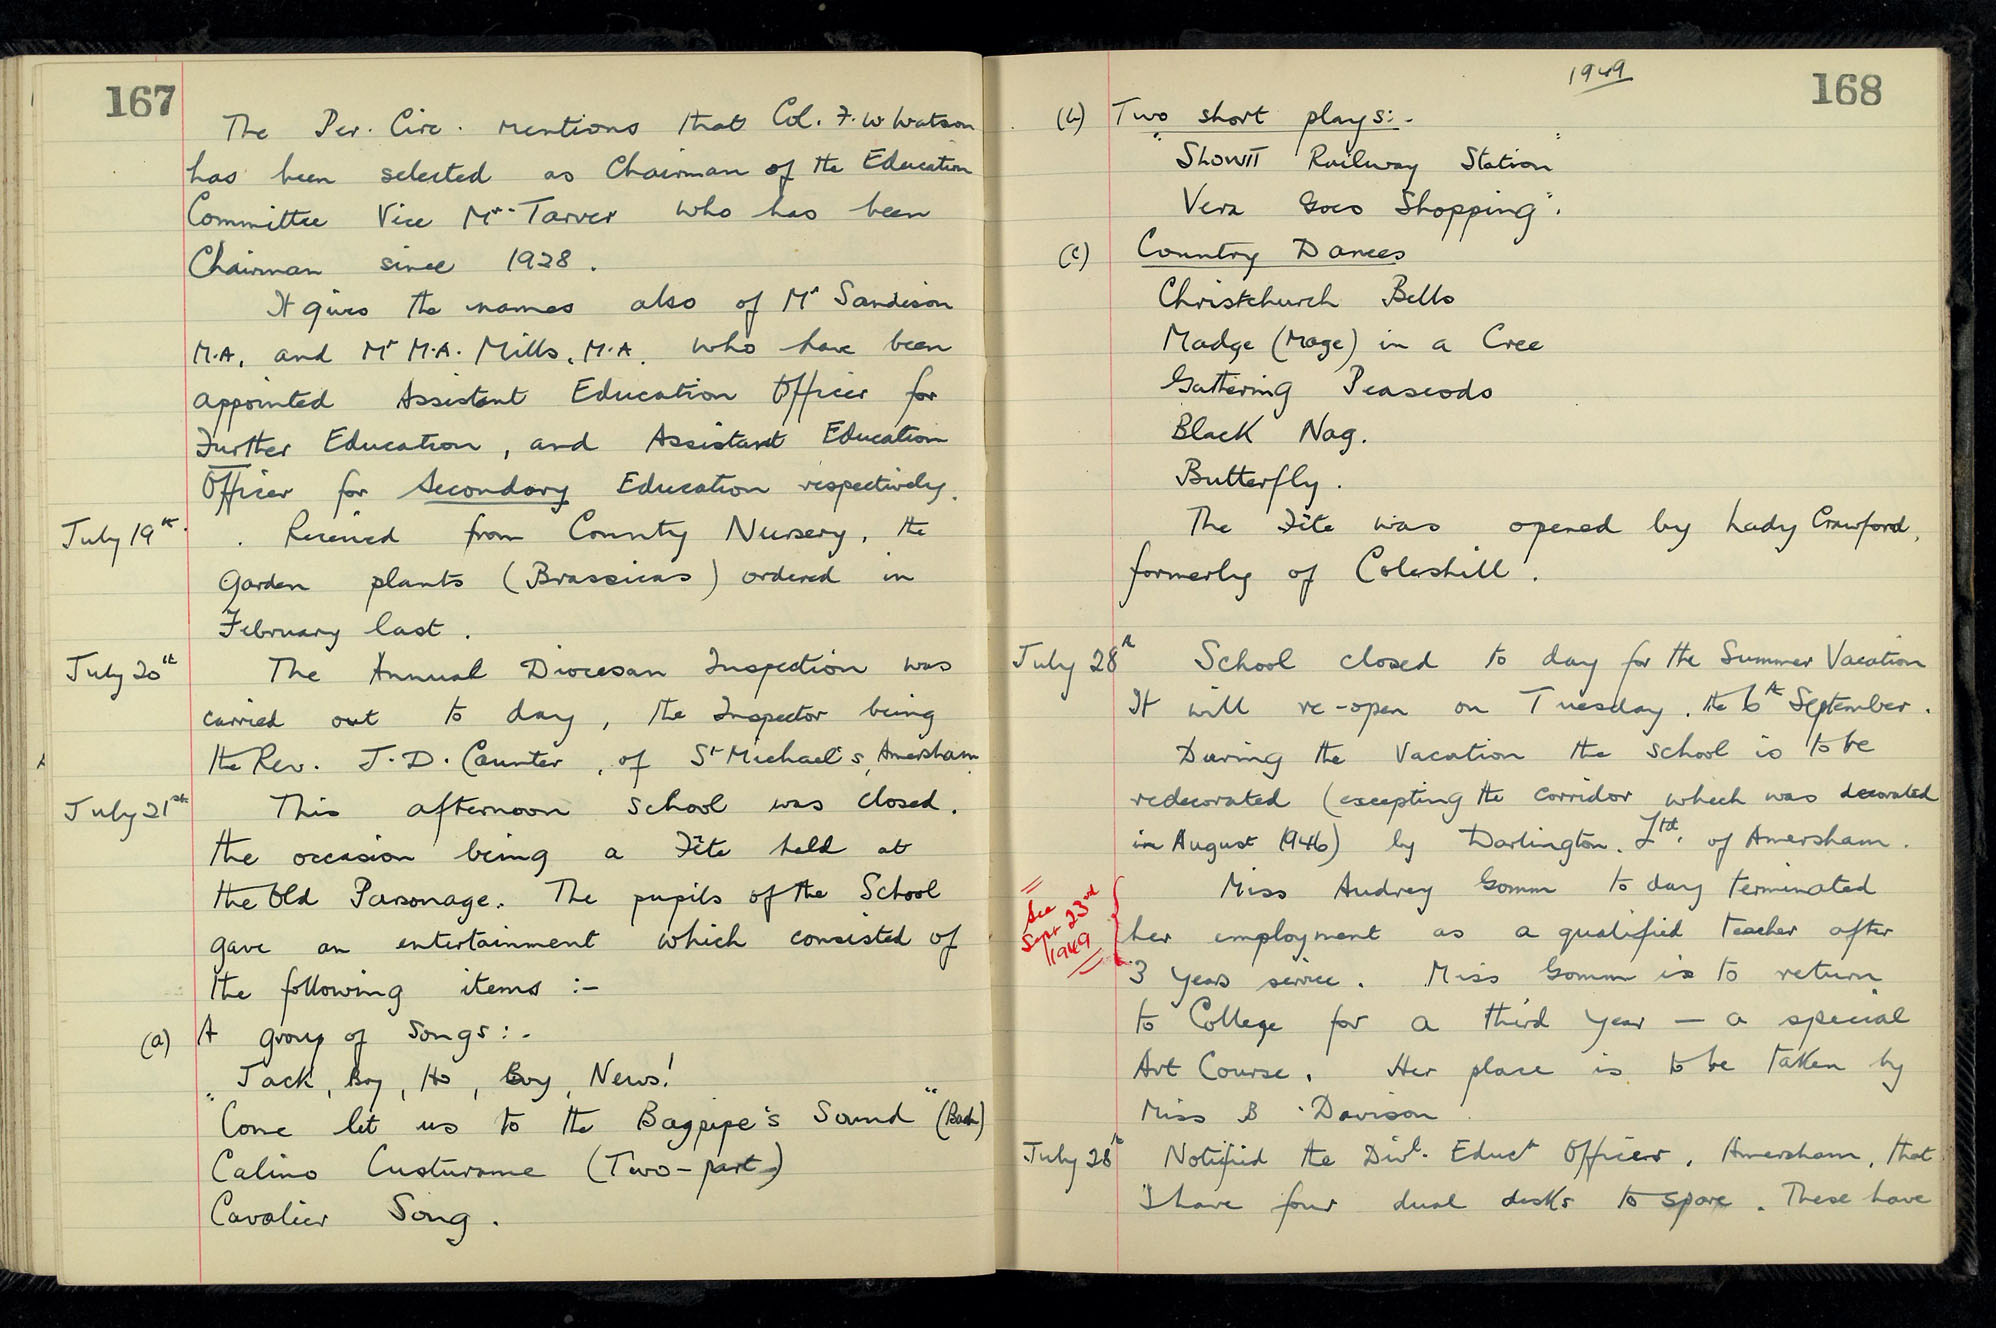 167
The Per. Circ. mentions that Col. F. W Watson
has been selected as Chairman of the Education
Committee Vice Mr. Tarver who has been
Chairman since 1928.
It gives the names also of Mr Sandison
M.A. and Mr M.A. Mills, M.A. who have been
appointed Assistant Education Officer for
Further Education, and Assistant Education
Officer for Secondary Education respectively.
July 19th. Received from County Nursery, the
Garden plants (Brassicas) ordered in
February last.
July 20th The Annual Diocesan Inspection was
carried out to day, the Inspector being
the Rev. J. D. Counter, of St Michael's, Amersham
July 21st This afternoon school was closed.
the occasion being a Fête held at
the Old Parsonage. The pupils of the School
gave an entertainment which consisted of
the following items :-
(a) A group of Songs:-
Jack, Boy, Ho, Boy, News!
"Come let us to the Bagpipe's Sound" (Bach)
Calino Custurame (Two-part)
Cavalier Song.
1949
168
(b) Two short plays:-
"Showtt Railway Station"
Vera Goes Shopping".
(c) Country Dances
Christchurch Bells
Madge (Mage) in a Cree
Gathering Peascods
Black Nag.
Butterfly.
The Fête was opened by Lady Crawford,
formerly of Coleshill.
July 28th School closed to day for the Summer Vacation
It will re-open on Tuesday, the 6th September.
During the Vacation the school is to be
redecorated (excepting the corridor which was decorated
in August 1946) by Darlington. Ltd. of Amersham.
Miss Audrey Gomm to day terminated
See
Sept 23rd
1949
her employment as a qualified teacher after
3 years service. Miss Gomm is to return
to College for a third year - a special
Art Course. Her place is to be taken by
Miss B Davison
July 28th Notified the Divl. Educt Officer, Amersham, that
I have four dual desks to spare. These have